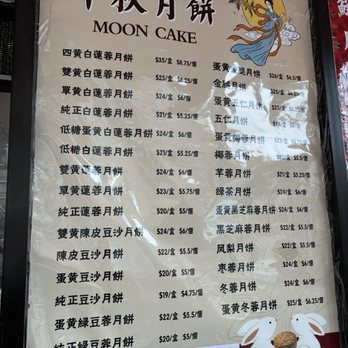 中秋月餅
MOON CAKE
四黄白蓮蓉月餅 $35/盒 $8.75/個
雙黄白蓮蓉月餅 $25/盒 $6.25/個
單黄白蓮蓉月餅 $24/盒 $6/個
純正白蓮蓉月餅 $21/盒 $5.25/個
低糖蛋黄白蓮蓉月餅 $24/盒 $6/個
低糖白蓮蓉月餅 $21/盒 $5.25/個
雙黄蓮蓉月餅 $24/盒 $6/個
單黄蓮蓉月餅 $23/盒 $5.75/個
純正蓮蓉月餅 $20/盒 $5/個
雙黄陳皮豆沙月餅 $24/盒 $6/個
陳皮豆沙月餅 $22/盒 $5.5/個
蛋黄豆沙月餅 $20/盒 $5/個
純正豆沙月餅 $19/盒 $4.75/個
蛋黄綠豆蓉月餅 $22/盒 $5.5/個
純正綠豆蓉月餅 $20/盒 $5/個
金腿月餅
蛋黄五仁月餅
五仁月餅
蛋黄椰蓉月餅 $24/盒 $6/個
椰蓉月餅 $21/盒 $5.25/個
芋蓉月餅 $21/盒 $5.25/個
綠茶月餅 $24/盒 $6/個
蛋黄黑芝麻蓉月餅 $24/盒 $6/個
黑芝麻蓉月餅 $22/盒 $5.5/個
鳳梨月餅 $22/盒 $5.5/個
枣蓉月餅 $24/盒 $6/個
冬蓉月餅 $24/盒 $6/個
蛋黄冬蓉月餅 $25/盒 $6.25/個